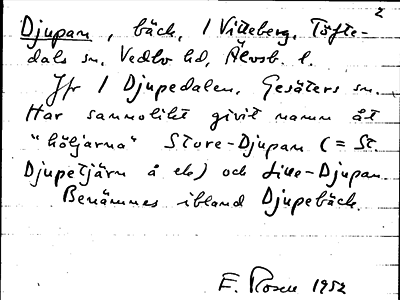 2
Djupan, bäck, 1 Vitteberg, Töfte-
dals sn, Vedbo hd, Älvsb. l.
Jfr 1 Djupedalen, Gesäters sn.
Har sannolikt givit namn åt
"höljarna" Store-Djupan (= St.
Djupetjärn å ek) och Lille-Djupan.
Benämnes ibland Djupebäck.
E. Rosell 1952